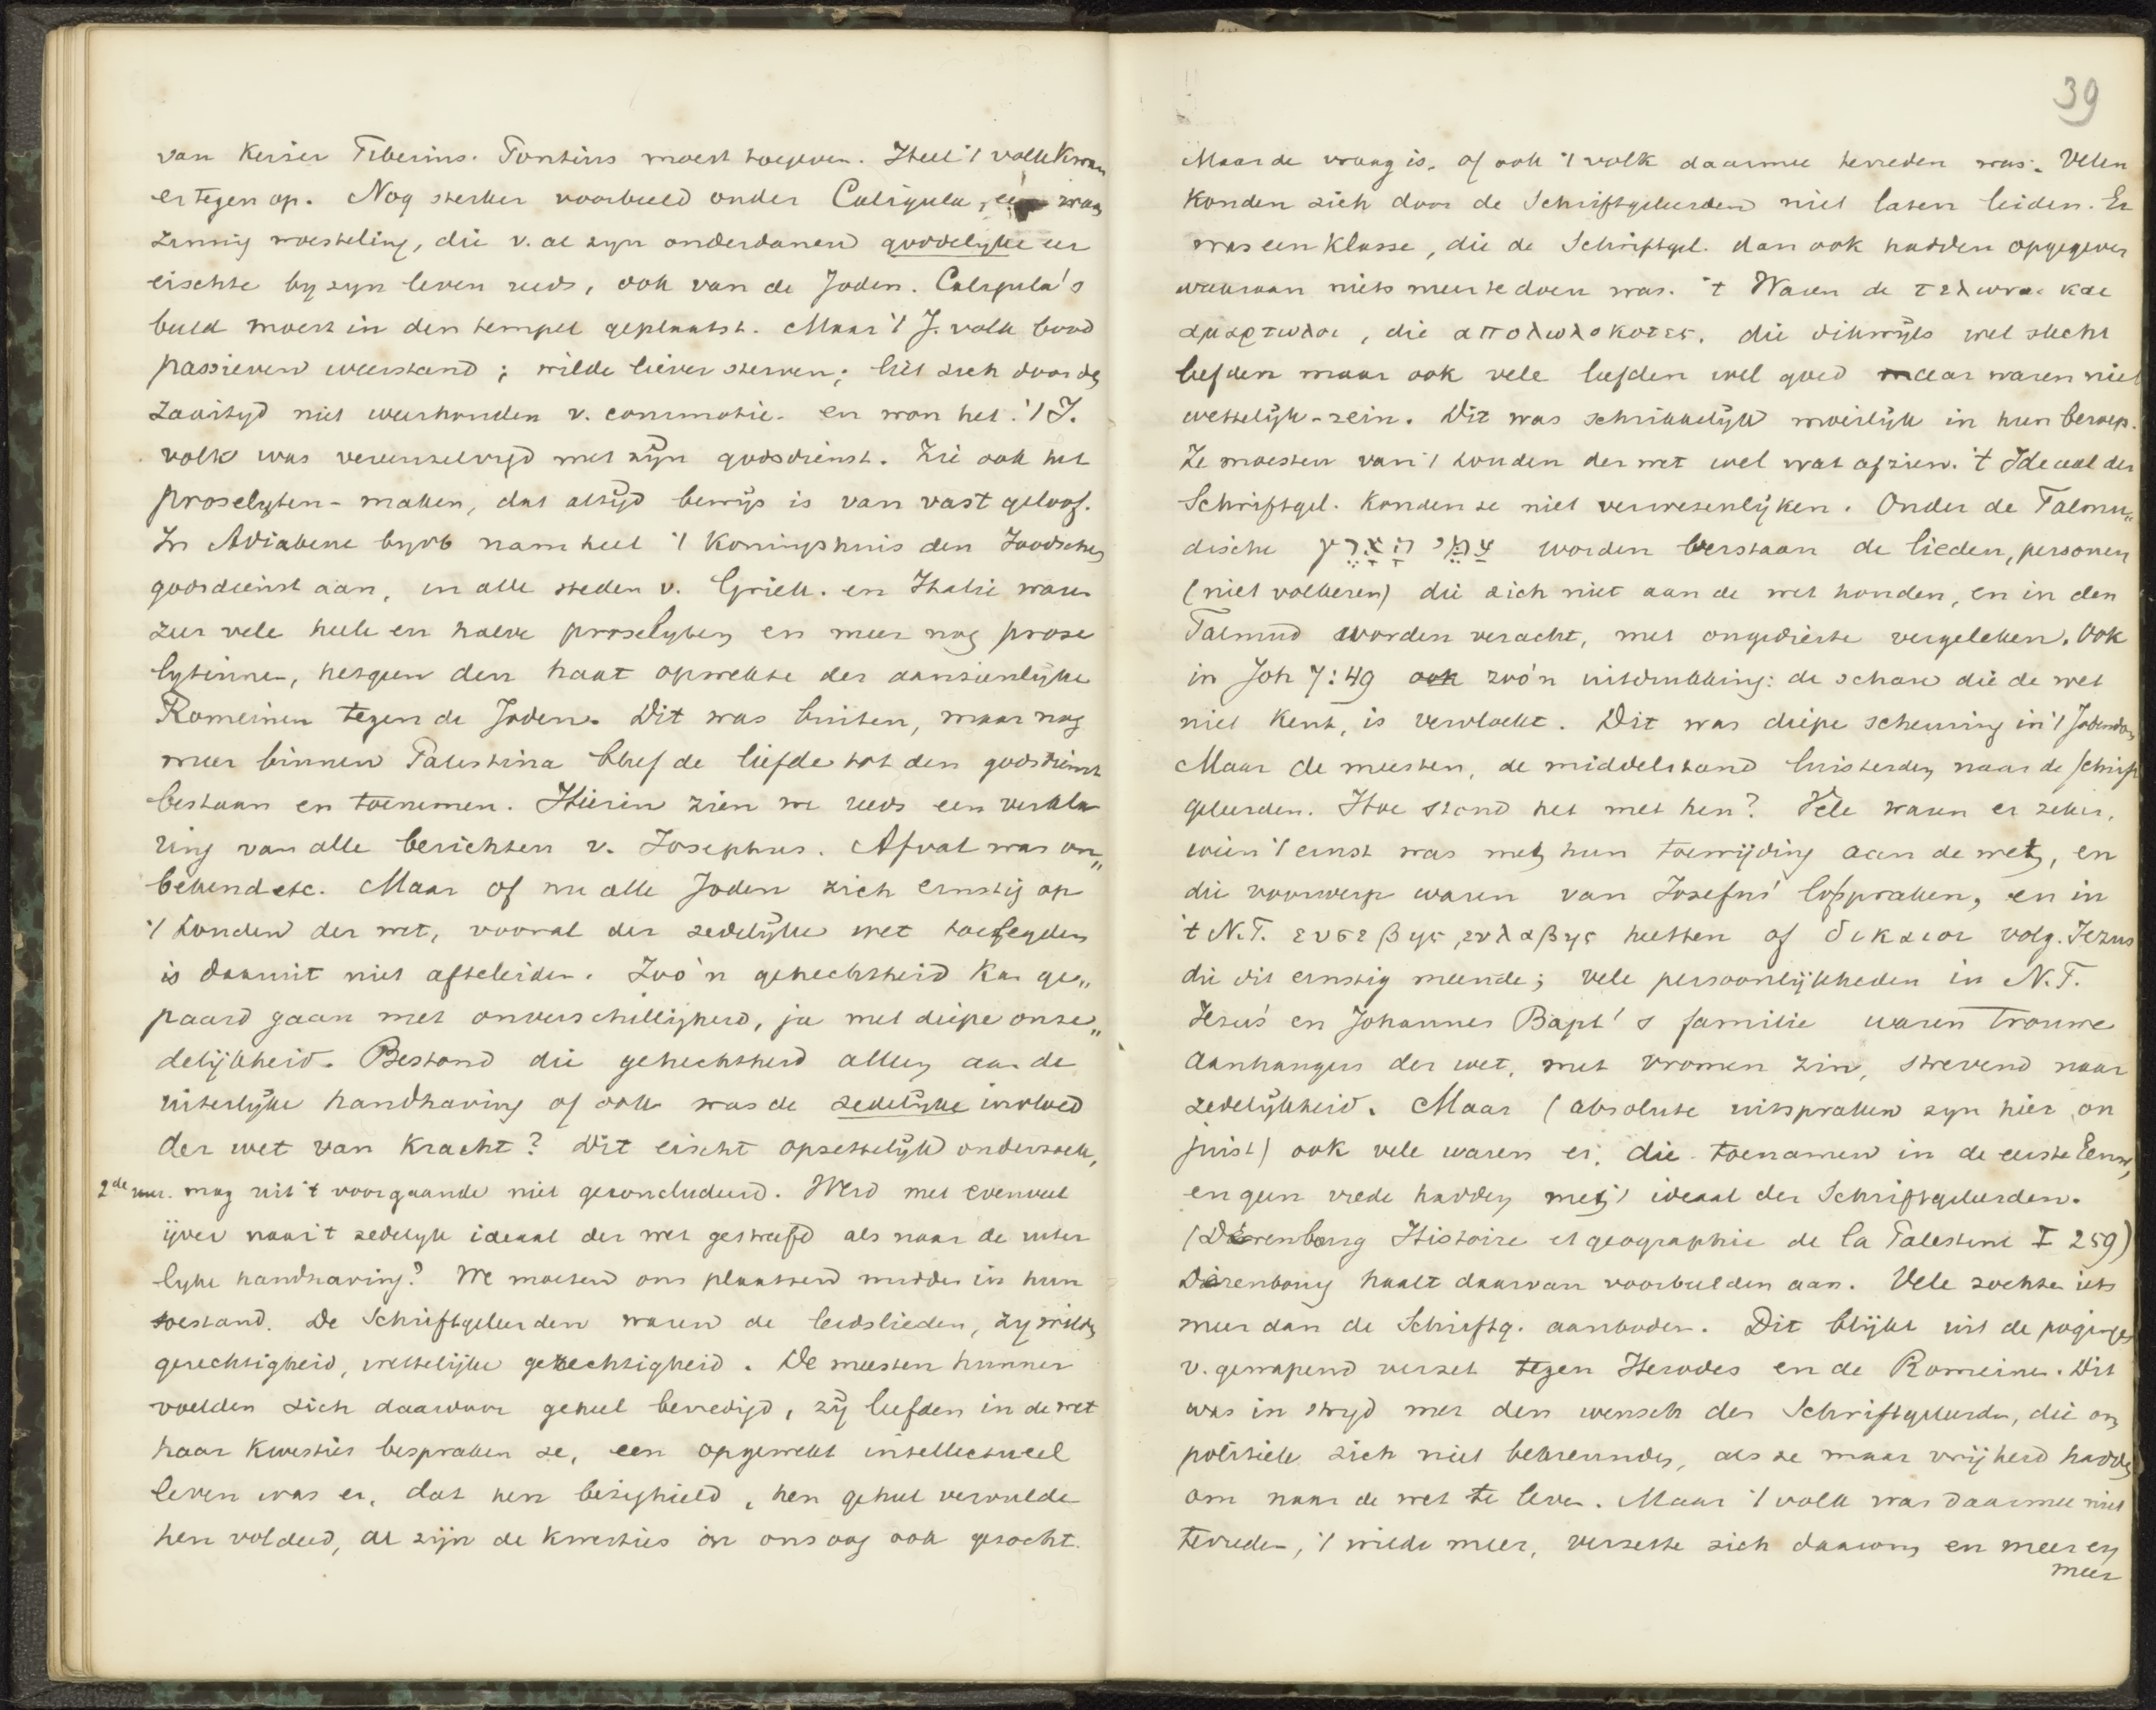 van Keiser Tiberius. Pontius moest toegeven. Heel 't volk kwam
er tegen op. Nog sterker voorbeeld onder Caligula, een waan
zinnig woesteling, die v. al zyn onderdanen goddelyke eer
eischte by zyn leven reeds, ook van de Joden. Caligula's
beeld moest in den tempel geplaatst. Maar 't J. volk bood
passieven weerstand; wilde liever sterven; liet zich door de
zaaityd niet weerhouden v. commotie. en won het. 't J.
volk was vereenzelvigd met zijn godsdienst. Zie ook het
proselyten-maken, dat altijd bewijs is van vast geloof.
In Adiabene byvb nam heel 't Koningshuis den Joodschen
godsdienst aan, in alle steden v. Griek. en Italie waren
zeer vele heele en halve proselyten en meer nog prose
lytinnen, hetgeen den haat opwekte der aanzienlijke
Romeinen tegen de Joden. Dit was buiten, maar nog
meer binnen Palestina bleef de liefde tot den godsdienst
bestaan en toenemen. Hierin zien we reeds een verkla
ring van alle berichten v. Josephus. Afval was on„
bekend etc. Maar of nu alle Joden zich ernstig op
't houden der wet, vooral der zedelijke wet toelegden
is daaruit niet afteleiden. Zoo'n gehechtheid kan ge„
paard gaan met onverschilligheid, ja met diepe onze„
delijkheid. Bestond die gehechtheid alleen aan de
uiterlijke handhaving of ook was de zedelijke invloed
der wet van kracht? Dit eischt opzettelijk onderzoek,
2de mag uit 't voorgaande niet geconcludeerd. Werd met evenveel
ijver naar 't zedelyk ideaal der wet gestreefd als naar de uiter
lyke handhaving? We moeten ons plaatsen midden in hun
toestand. De Schriftgeleerden waren de leidslieden, zy wilden
gerechtigheid, wettelijke gerechtigheid. De meesten hunner
voelden zich daardoor geheel bevredigd, zij leefden in de wet
haar kwesties bespraken ze, een opgewekt intellectueel
leven was er, dat hen bezighield, hen geheel vervulde
hen voldeed, al zijn de kwesties in ons oog ook gezocht.
39
Maar de vraag is, of ook 't volk daarmee tevreden was. Velen
konden zich door de Schriftgeleerden niet laten leiden. Er
was een klasse, die de Schriftgel. dan ook hadden opgegeven
waaraan niets meer te doen was. 't Waren de τελωναι και
αμαρτωλοι, die απολωλοκοτες, die dikwijls wel slecht
leefden maar ook vele leefden wel goed maar waren niet
wettelijk-rein. Dit was schrikkelijk moeilijk in hun beroep.
Ze moesten van 't houden der wet wel wat afzien. 't Ideaal der
Schriftgel. konden ze niet verwezenlijken. Onder de Talmu„
dische עַמֵּי הָאָרֶץ worden verstaan de lieden, personen
(niet volkeren) die zich niet aan de wet houden, en in den
Talmud worden veracht, met ongedierte vergeleken. Ook
in Joh 7:49 ook zoo'n uitdrukking: de schare die de wet
niet kent, is vervloekt. Dit was diepe scheuring in 't Jodendom
Maar de meesten, de middelstand luisterden naar de schrift
geleerden. Hoe stond het met hen? Vele waren er zeker,
wien 't ernst was met hun toewijding aan de wet, en
die voorwerp waren van Josefus' lofspraken, en in
't N.T. ευσεβης, ευλαβης heetten of δικαιοι volg. Jezus
die dit ernstig meende; vele persoonlijkheden in N.T.
Jezus' en Johannes Bapt's familie waren trouwe
aanhangers der wet, met vromen zin, strevend naar
zedelijkheid. Maar (absolute uitspraken zyn hier on
juist) ook vele waren er, die toenamen in de eerste Eeuw,
en geen vrede hadden met 't ideaal der Schriftgeleerden.
(Derenbourg Histoire et geographie de la Palestine I 259)
Derenbourg haalt daarvan voorbeelden aan. Vele zochten iets
meer dan de Schriftg. aanboden. Dit blijkt uit de pogingen
v. gewapend verzet tegen Herodes en de Romeinen. Dit
was in stryd met den wensch der Schriftgeleerden, die om
politiek zich niet bekreunden, als ze maar vrijheid hadden
om naar de wet te leven. Maar 't volk was daarmee niet
tevreden, 't wilde meer, verzette zich daarom en meer en
meer